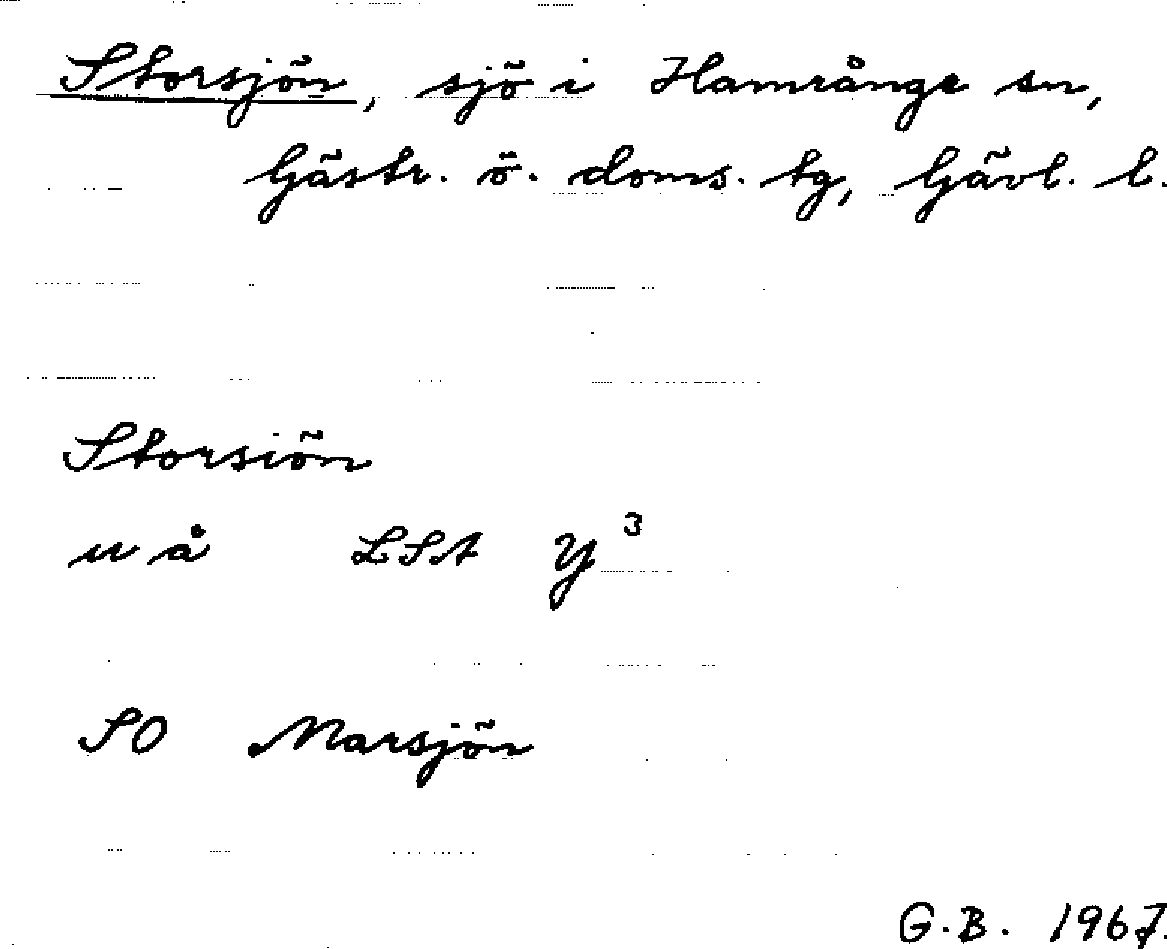 Storsjön, sjö i Hamrånge sn,
Gästr. ö. doms. tg, Gävl. l.
Storsiön
u å LSA Y³
SO Marsjön
G.B. 1967.